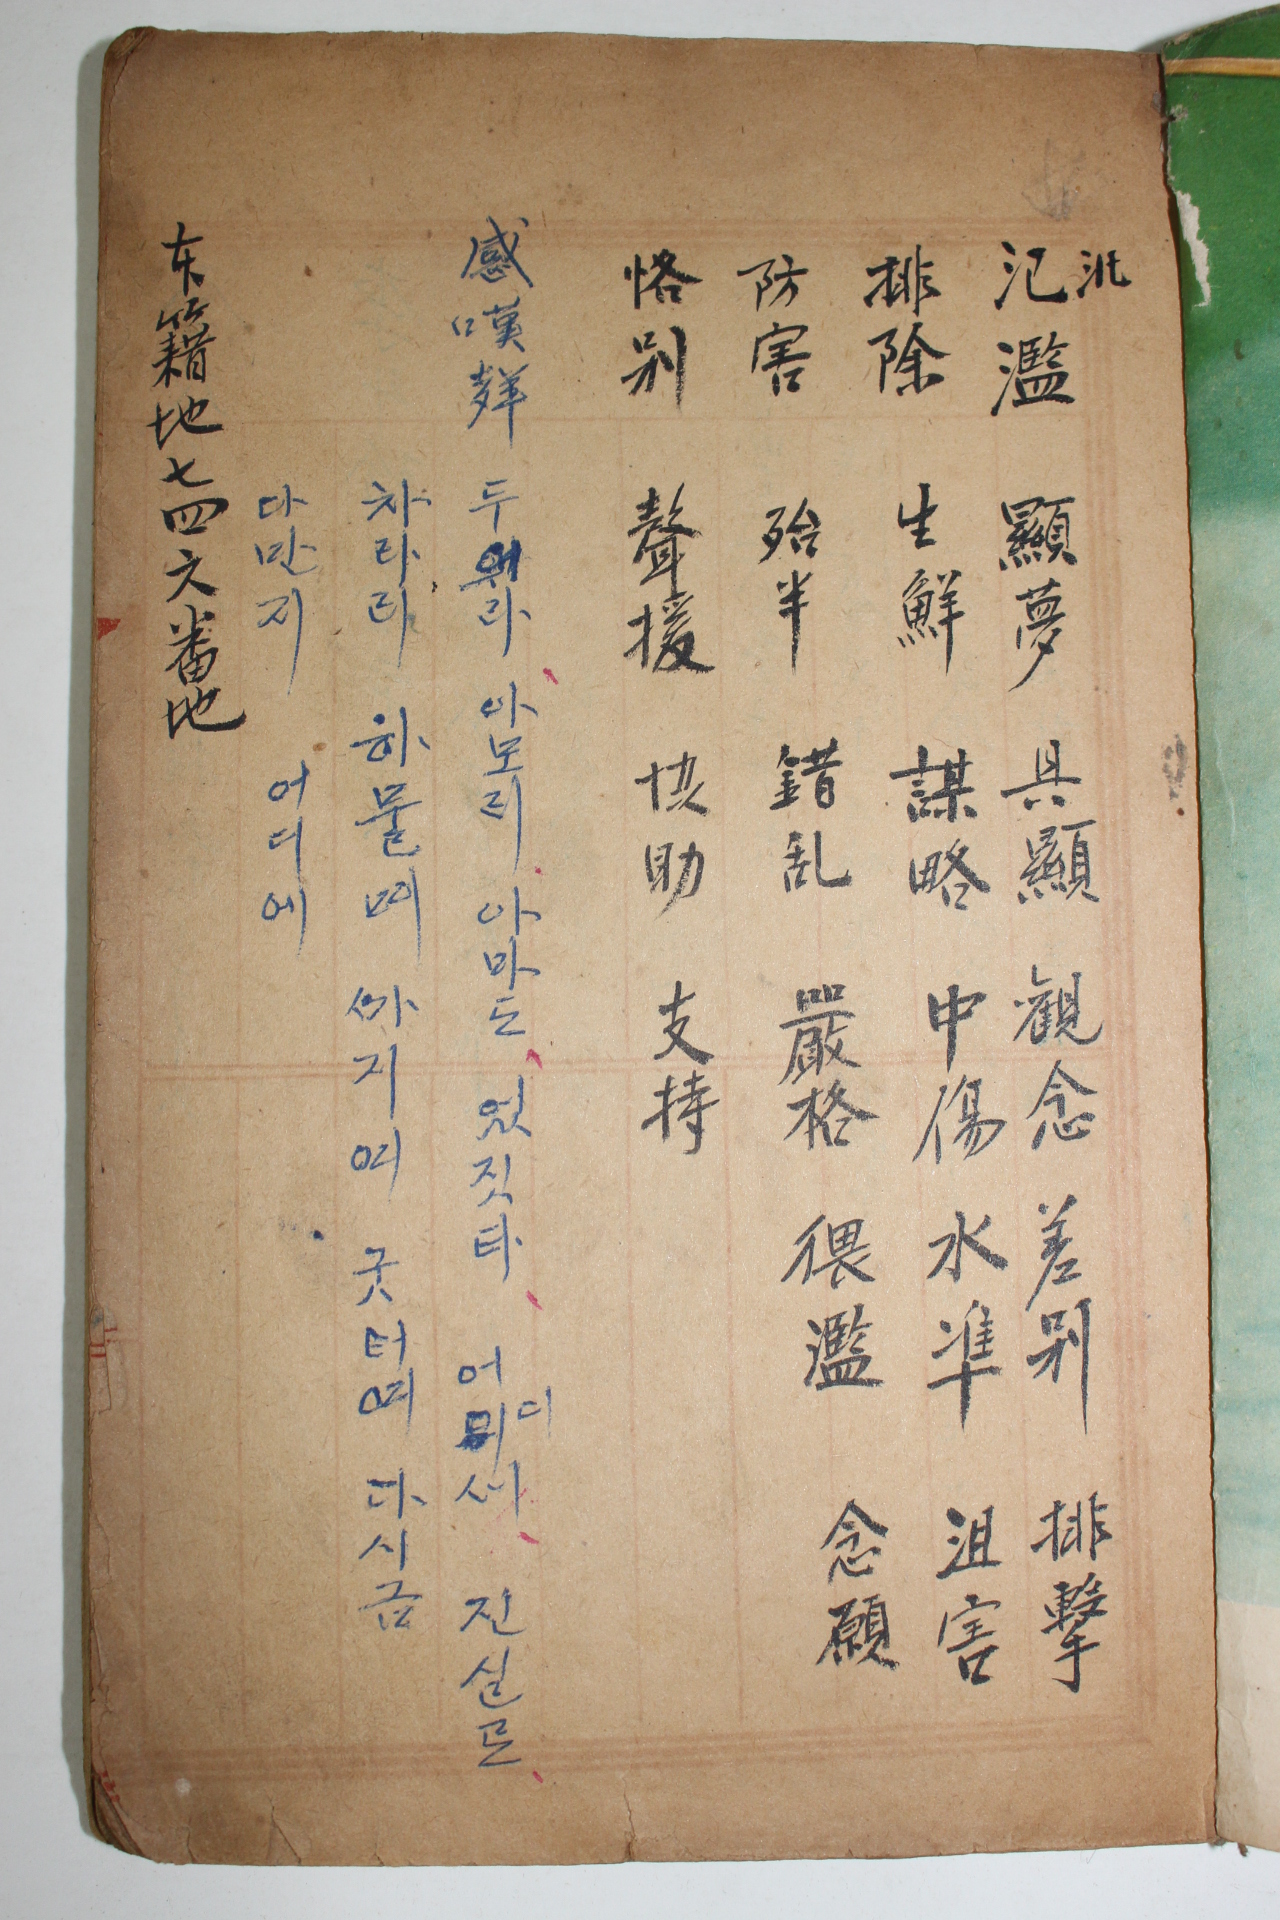 汜濫 顯夢 具顯 観念 差别 排撃
排除 生鮮 謀略 中傷 水準 沮害
防害 殆半 錯乱 嚴格 猥濫 念願
恪别 聲援 協助 支持
感嘆 두워라 아모리 아마도 엇짓타 어디서 진실로
차라리 하물며 까지여 굿터여 다시금
다만지 어디에
本籍地七四六番地